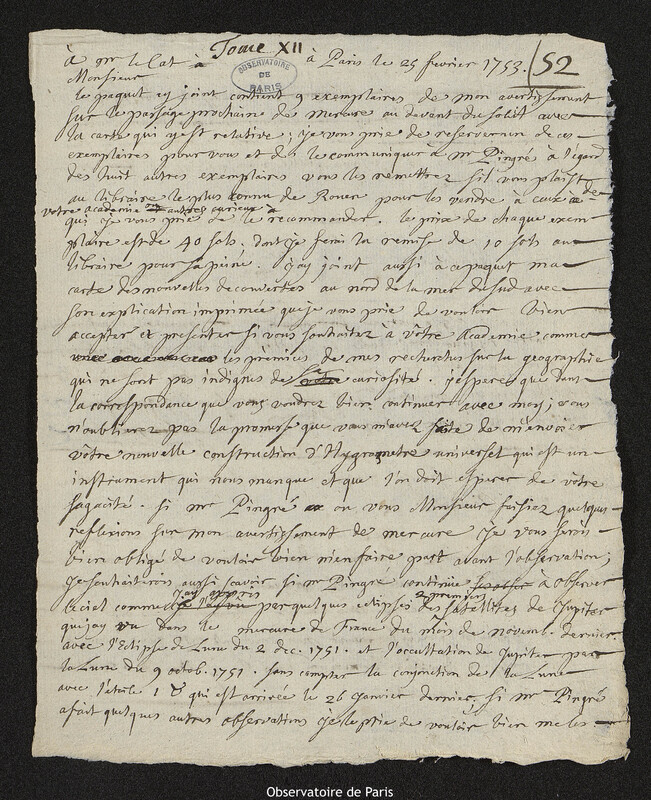 Tome XII
à mr le Cat à à Paris le 25 fevrier 1753. 52
OBSERVATOIRE DE PARIS
Monsieur
le paquet cy joint contient 9 exemplaires de mon avertissement
sur le passage prochain de mercure au devant du soleil avec
la carte qui y est relative; je vous prie de reserver un de ces
exemplaires pour vous et de le communiquer à mr Pingré à l'égard
des huit autres exemplaires vous les remettrez s'il vous plaist
au libraire le plus connu de Rouen pour les vendre à ceux de
votre academie ou autres curieux à
qui je vous prie de le recommander. le prix de chaque exem-
plaire est de 40 sols. dont je ferai la remise de 10 sols au
libraire pour sa peine. j'ay joint aussi à ce paquet ma
carte des nouvelles decouvertes au nord de la mer du sud avec
son explication imprimée que je vous prie de vouloir bien
accepter et presenter si vous souhaitez à vôtre Academie comme
les premices de mes recherches sur la geographie
qui ne sont pas indignes de sa curiosité. j'espere que dans
la correspondance que vous voudrez bien continuer avec moy; vous
n'oublierez pas la promesse que vous m'avez faite de m'envoier
vôtre nouvelle construction d'Hygrometre universel qui est un
instrument qui nous manque et que l'on doit esperer de vôtre
sagacité. si mr Pingré ou vous Monsieur faisiez quelques
reflexions sur mon avertissement de mercure je vous serois
bien obligé de vouloir bien m'en faire part avant l'observation;
je souhaiterois aussi scavoir si mr Pingré continue à observer
le ciel comme j'ay appris par quelques eclipses des 2 premiers satellites de Jupiter
que j'ay vu dans le mercure de France du mois de novemb. dernier
avec l'Eclipse de Lune du 2 dec. 1751. et l'occultation de Jupiter par
la Lune du 9 octob. 1751. sans compter la conjonction de la Lune
avec l'étoile 1 ♉ qui est arrivée le 26 Janvier dernier, si mr Pingré
a fait quelques autres observations je le prie de vouloir bien me les
Observatoire de Paris